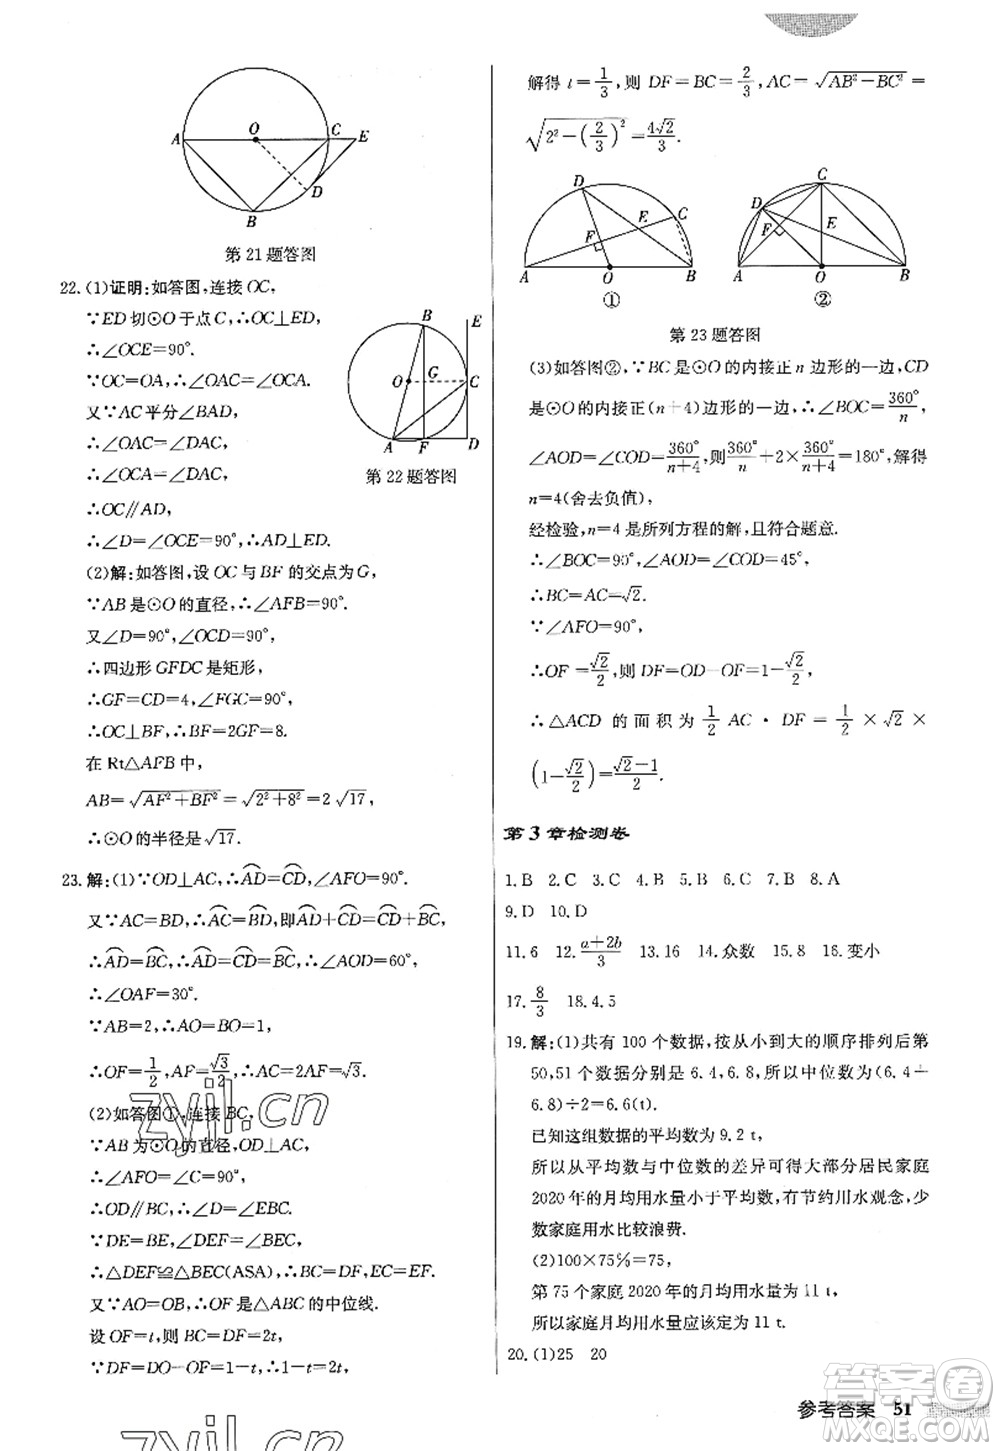 A
O
C
E
D
B
第21题答图
22. (1)证明:如答图,连接OC,
∵ED切⊙O于点C,∴OC⊥ED,
∴∠OCE=90°.
∵OC=OA,∴∠OAC=∠OCA.
又∵AC平分∠BAD,
∴∠OAC=∠DAC,
∴∠OCA=∠DAC,
∴OC∥AD,
∴∠D=∠OCE=90°,∴AD⊥ED.
B
E
G
O
C
A
F
D
第22题答图
(2)解:如答图,设OC与BF的交点为G,
∵AB是⊙O的直径,∴∠AFB=90°.
又∠D=90°,∠OCD=90°,
∴四边形GFDC是矩形,
∴GF=CD=4,∠FGC=90°,
∴OC⊥BF,∴BF=2GF=8.
在Rt△AFB中,
AB=√(AF²+BF²)=√(2²+8²)=2√17,
∴⊙O的半径是√17.
23. 解:(1)∵OD⊥AC,∴⌒AD=⌒CD,∠AFO=90°.
又∵AC=BD,∴⌒AC=⌒BD,即⌒AD+⌒CD=⌒CD+⌒BC,
∴⌒AD=⌒BC,∴⌒AD=⌒CD=⌒BC,∴∠AOD=60°,
∴∠OAF=30°.
∵AB=2,∴AO=BO=1,
∴OF=1/2,AF=√3/2,∴AC=2AF=√3.
(2)如答图①,连接BC,
∵AB为⊙O的直径,OD⊥AC,
∴∠AFO=∠C=90°,
∴OD∥BC,∴∠D=∠EBC.
∵DE=BE,∠DEF=∠BEC,
∴△DEF≌△BEC(ASA),∴BC=DF.
又∵AO=OB,∴OF是△ABC的中位线.
设OF=t,则BC=DF=2t,
∵DF=DO-OF=1-t,∴1-t=2t,
解得t=1/3,则DF=BC=2/3,AC=√(AB²-BC²)=
√(2²-(2/3)²)=4√2/3.
D
E
C
F
A
O
B
①
C
D
F
E
A
O
B
②
第23题答图
(3)如答图②,∵BC是⊙O的内接正n边形的一边,CD
是⊙O的内接正(n+4)边形的一边,∴∠BOC=360°/n,
∠AOD=∠COD=360°/(n+4),则360°/n+2×360°/(n+4)=180°,解得
n=4(舍去负值),
经检验,n=4是所列方程的解,且符合题意.
∴∠BOC=90°,∠AOD=∠COD=45°,
∴BC=AC=√2.
∵∠AFO=90°,
∴OF=√2/2,则DF=OD-OF=1-√2/2,
∴△ACD的面积为1/2 AC·DF=1/2×√2×
(1-√2/2)=(√2-1)/2.
第3章检测卷
1. B 2. C 3. C 4. C 5. B 6. B 7. B 8. A
9. D 10. D
11. 6 12. (a+2b)/3 13. 16 14. 众数 15. 8 16. 变小
17. 8/3 18. 4.5
19. 解:(1)共有100个数据,按从小到大的顺序排列后第
50,51个数据分别是6.4,6.8,所以中位数为(6.4+
6.8)÷2=6.6(t).
已知这组数据的平均数为9.2 t,
所以从平均数与中位数的差异可得大部分居民家庭
2020年的月均用水量小于平均数,有节约用水观念,少
数家庭用水比较浪费.
(2)100×75%=75,
第75个家庭2020年的月均用水量为11 t,
所以家庭月均用水量应该定为11 t.
20. (1)25 20
参考答案 51
zyjl.cn
zyjl.cn
答案圈
MXQE.COM